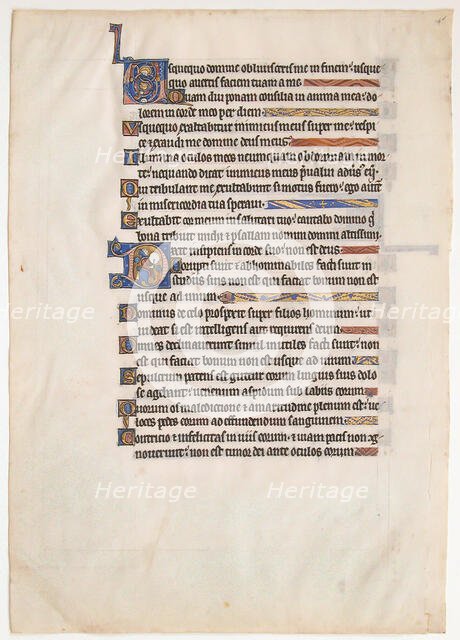 Usquequo domine obliuisceris me in finem: usque
quo auertis faciem tuam a me.
Quam diu ponam consilia in anima mea: do
lorem in corde meo per diem.
Usquequo exaltabitur inimicus meus super me: respi
ce et exaudi me domine deus meus.
Illumina oculos meos ne umquam obdormiam in mor
te: nequando dicat inimicus meus preualui aduersus eum.
Qui tribulant me exultabunt si motus fuero: ego autem
in misericordia tua speraui.
Exultabit cor meum in salutari tuo: cantabo domino qui
bona tribuit michi et psallam nomini domini altissimi.
Dixit insipiens in corde suo: non est deus.
Corrupti sunt et abhominabiles facti sunt in
studiis suis: non est qui faciat bonum non est
usque ad unum.
Dominus de celo prospexit super filios hominum: ut
uideat si est intelligens aut requirens deum.
Omnes declinauerunt simul inutiles facti sunt: non
est qui faciat bonum non est usque ad unum.
Sepulcrum patens est guttur eorum linguis suis dolo
se agebant: uenenum aspidum sub labiis eorum.
Quorum os maledictione et amaritudine plenum est: ue
loces pedes eorum ad effundendum sanguinem.
Contricio et infelicitas in uiis eorum: et uiam pacis non cog
nouerunt: non est timor dei ante oculos eorum.
Heritage Heritage
Heritage Heritage
Heritage Heritage